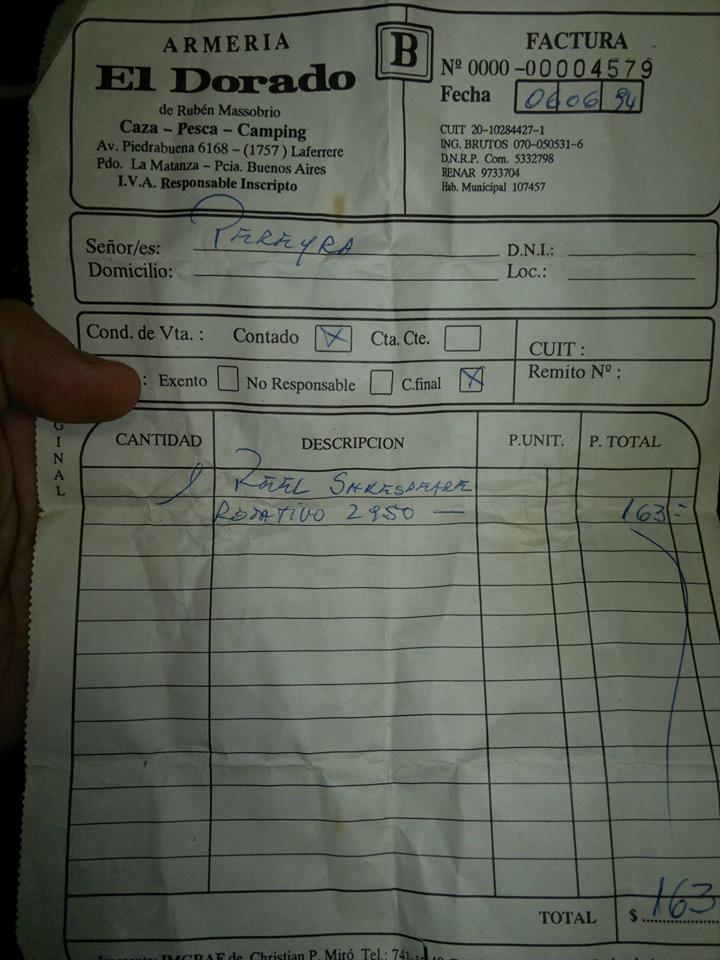 ARMERIA
El Dorado
de Rubén Massobrio
Caza - Pesca - Camping
Av. Piedrabuena 6168 - (1757) Laferrere
Pdo. La Matanza - Pcia. Buenos Aires
I.V.A. Responsable Inscripto
B
FACTURA
Nº 0000 -00004579
Fecha 06 06 94
CUIT 20-10284427-1
ING. BRUTOS 070-050531-6
D.N.R.P. Com. 5332798
RENAR 9733704
Hab. Municipal 107457
Señor/es: PEREYRA D.N.I.:
Domicilio: Loc.:
Cond. de Vta. : Contado X Cta. Cte.
CUIT :
: Exento No Responsable C.final X
Remito Nº :
GINAL
CANTIDAD DESCRIPCION P.UNIT. P. TOTAL
1 REEL SHAKESPEARE
ROTATIVO 2950 — 163=
TOTAL $ 163
de Christian P. Miró Tel.: 741